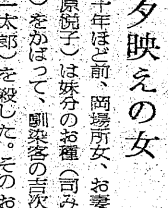 夕映えの女
十年ほど前、岡場所女、お妻
原悦子）は妹分のお種（司み
）をかばって、馴染客の吉次
一太郎）を殺した。そのお